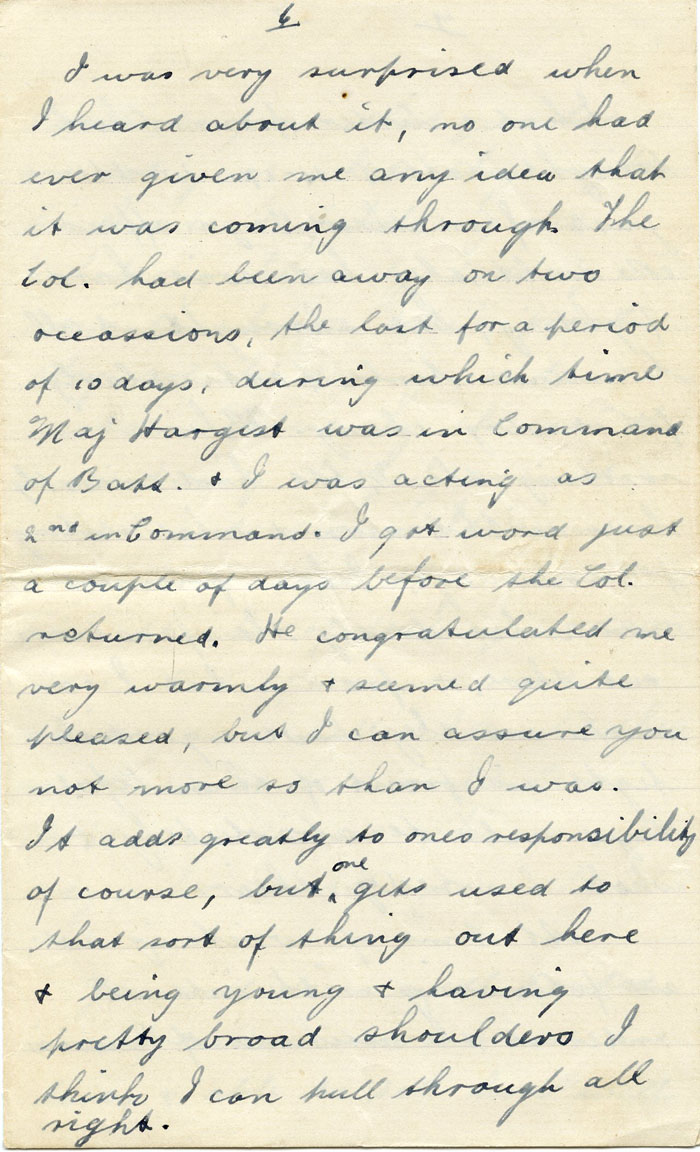 6
I was very surprised when
I heard about it, no one had
ever given me any idea that
it was coming through. The
Col. had been away on two
occassions, the last for a period
of 10 days, during which time
Maj Hargist was in Command
of Batt. & I was acting as
2nd in Command. I got word just
a couple of days before the Col.
returned. He congratulated me
very warmly & seemed quite
pleased, but I can assure you
not more so than I was.
It adds greatly to ones responsibility
of course, but one gets used to
that sort of thing out here
& being young & having
pretty broad shoulders I
think I can pull through all
right.